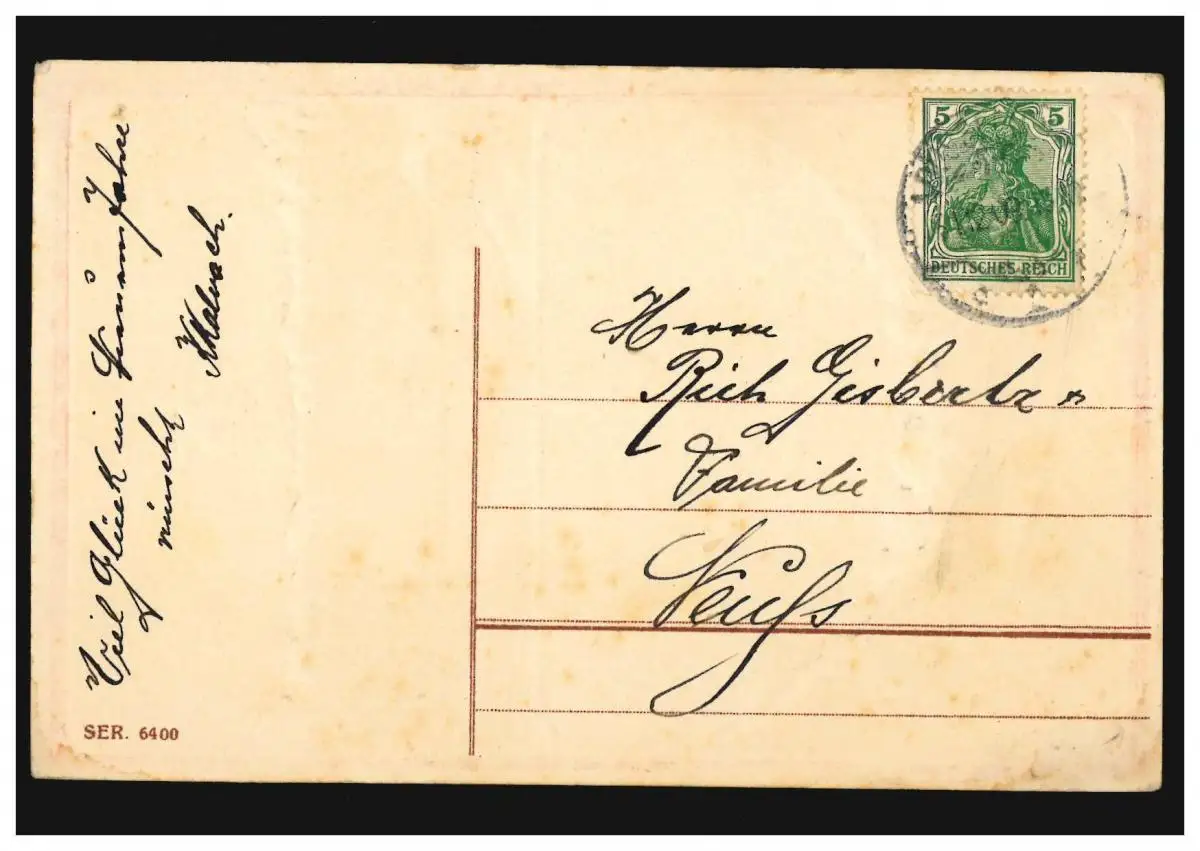 Viel Glück im Neuen Jahre
wünscht
SER. 6400
5 5
DEUTSCHES REICH
Herrn
Rich Gisbertz
Familie
Neuss